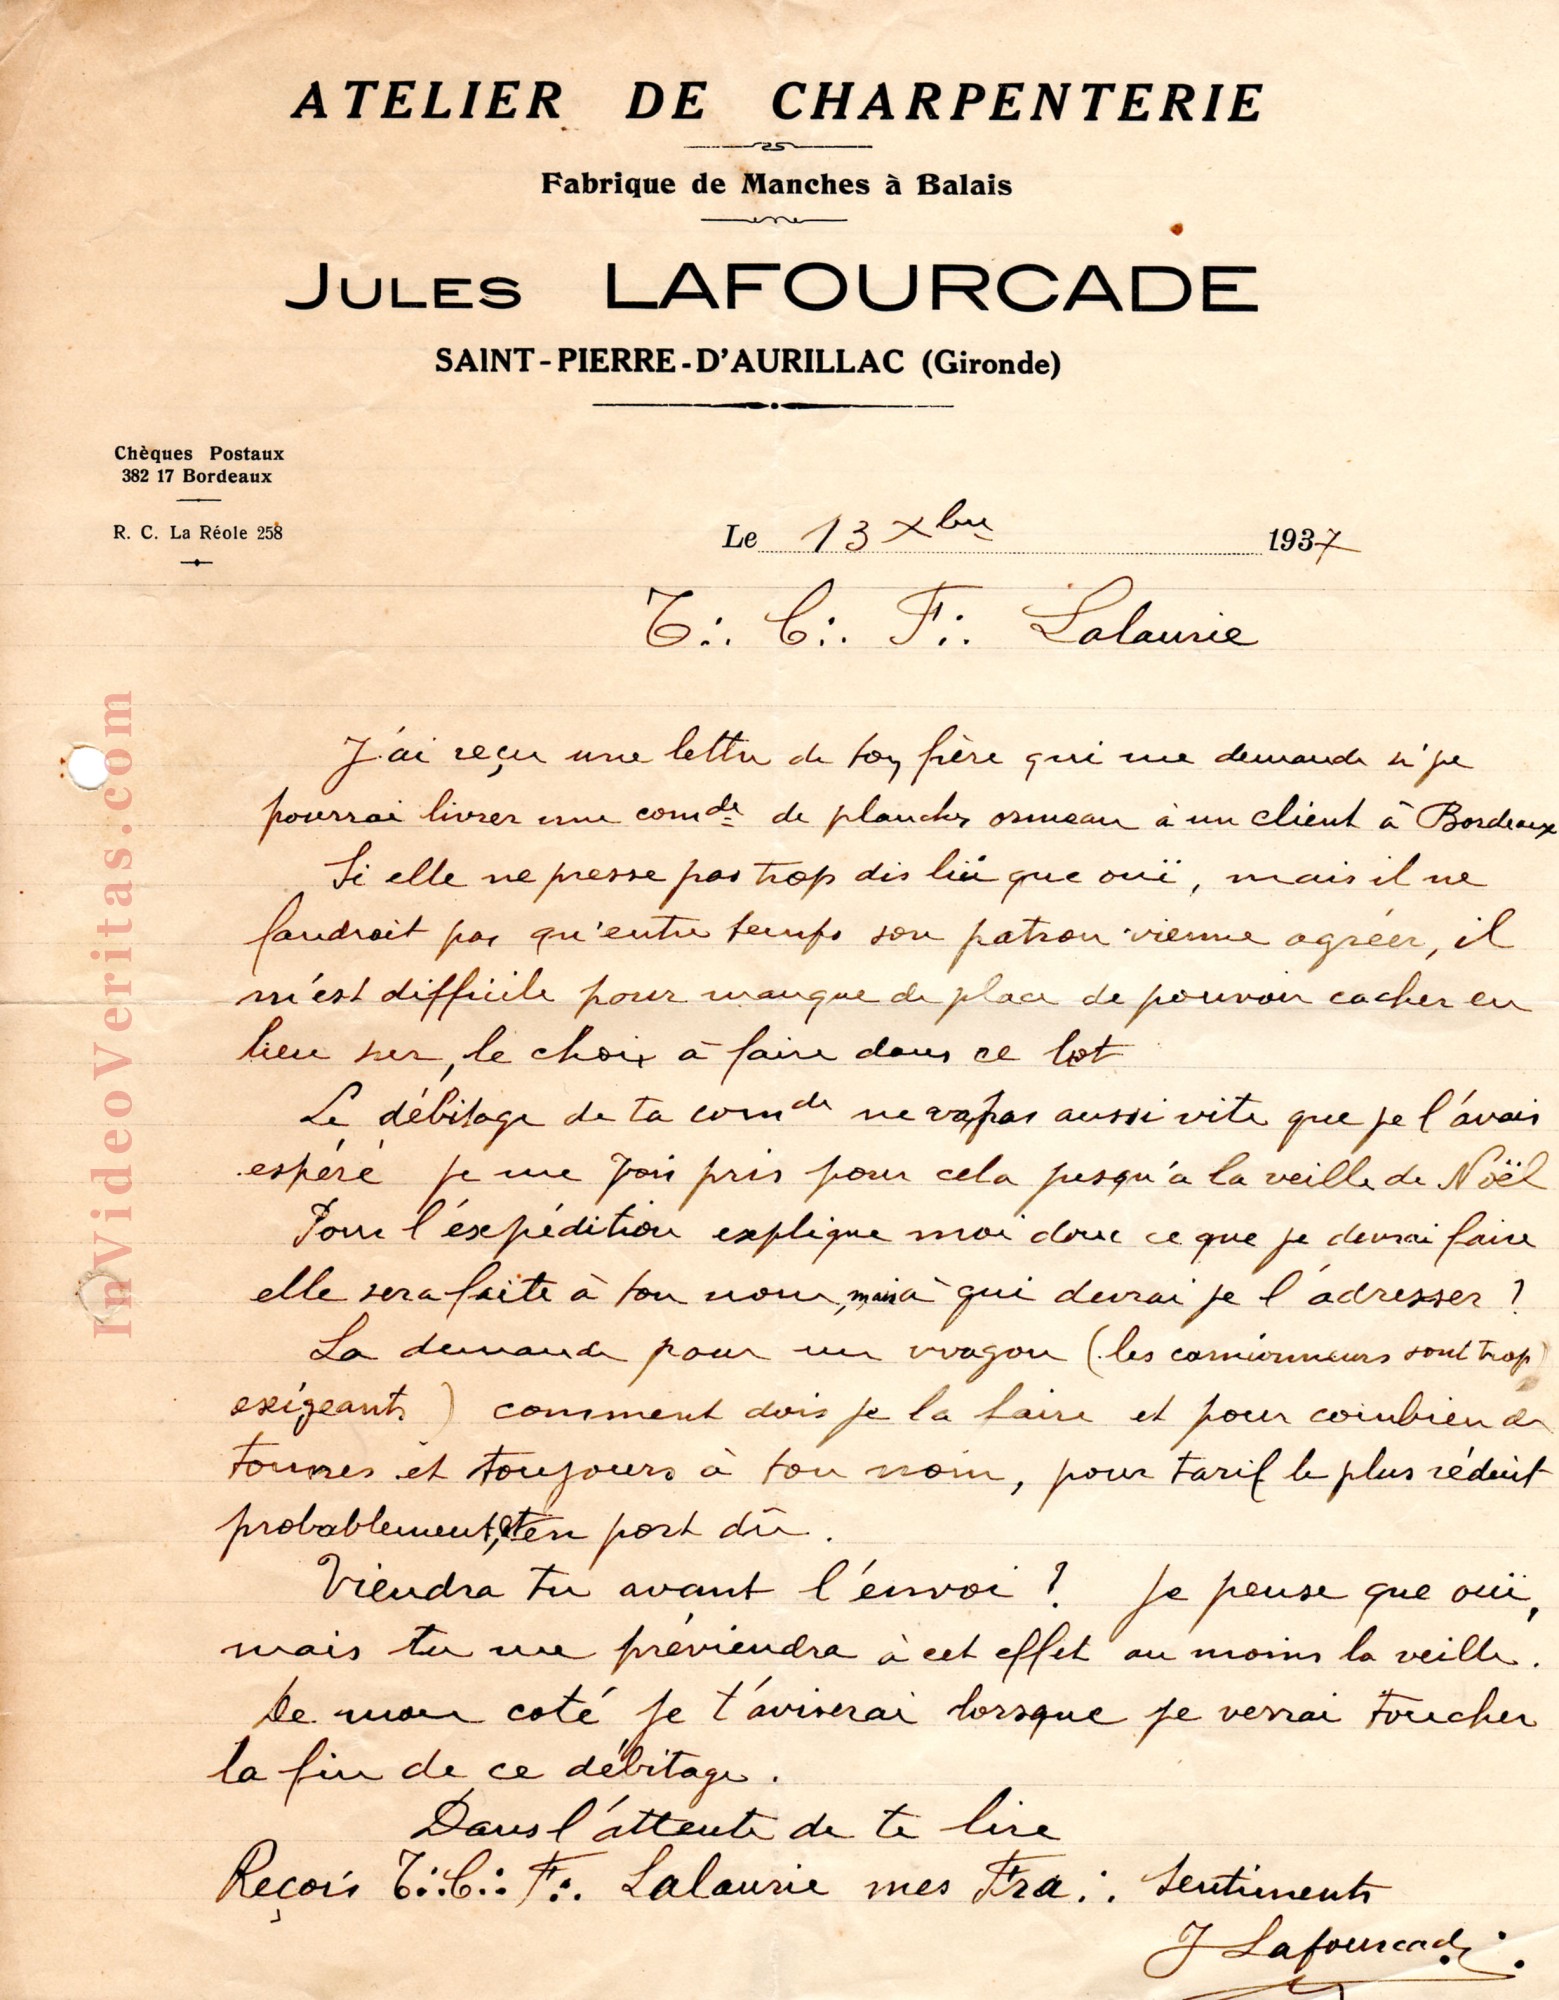 ATELIER DE CHARPENTERIE
Fabrique de Manches à Balais
JULES LAFOURCADE
SAINT-PIERRE-D'AURILLAC (Gironde)
Chèques Postaux
382 17 Bordeaux
R. C. La Réole 258
Le 13 Xbre 1937
T∴ C∴ F∴ Lalaurie
J'ai reçu une lettre de ton frère qui me demande si je
pourrai livrer une comde de planches ormeau à un client à Bordeaux
Si elle ne presse pas trop dis lui que ouï, mais il ne
faudrait pas qu'entre temps son patron vienne agréer, il
m'est difficile pour manque de place de pouvoir cacher en
lieu sur, le choix à faire dans ce lot
Le débitage de ta comde ne va pas aussi vite que je l'avais
espéré je me fois pris pour cela jusqu'a la veille de Noël
Pour l'éxpédition explique moi donc ce que je devrai faire
elle sera faite à ton nom, mais à qui devrai je l'adresser ?
La demande pour un wagon (les camionneurs sont trop
exigeants) comment dois je la faire et pour combien de
tonnes et toujours à ton nom, pour tarif le plus réduit
probablement, et en port dû.
Viendra tu avant l'envoi ? Je pense que ouï,
mais tu me préviendra à cet effet au moins la veille.
De mon coté je t'aviserai lorsque je verrai toucher
la fin de ce débitage.
Dans l'attente de te lire
Reçois T∴C∴F∴ Lalaurie mes Fra∴ sentiments
J Lafourcade∴
InVideoVeritas.com